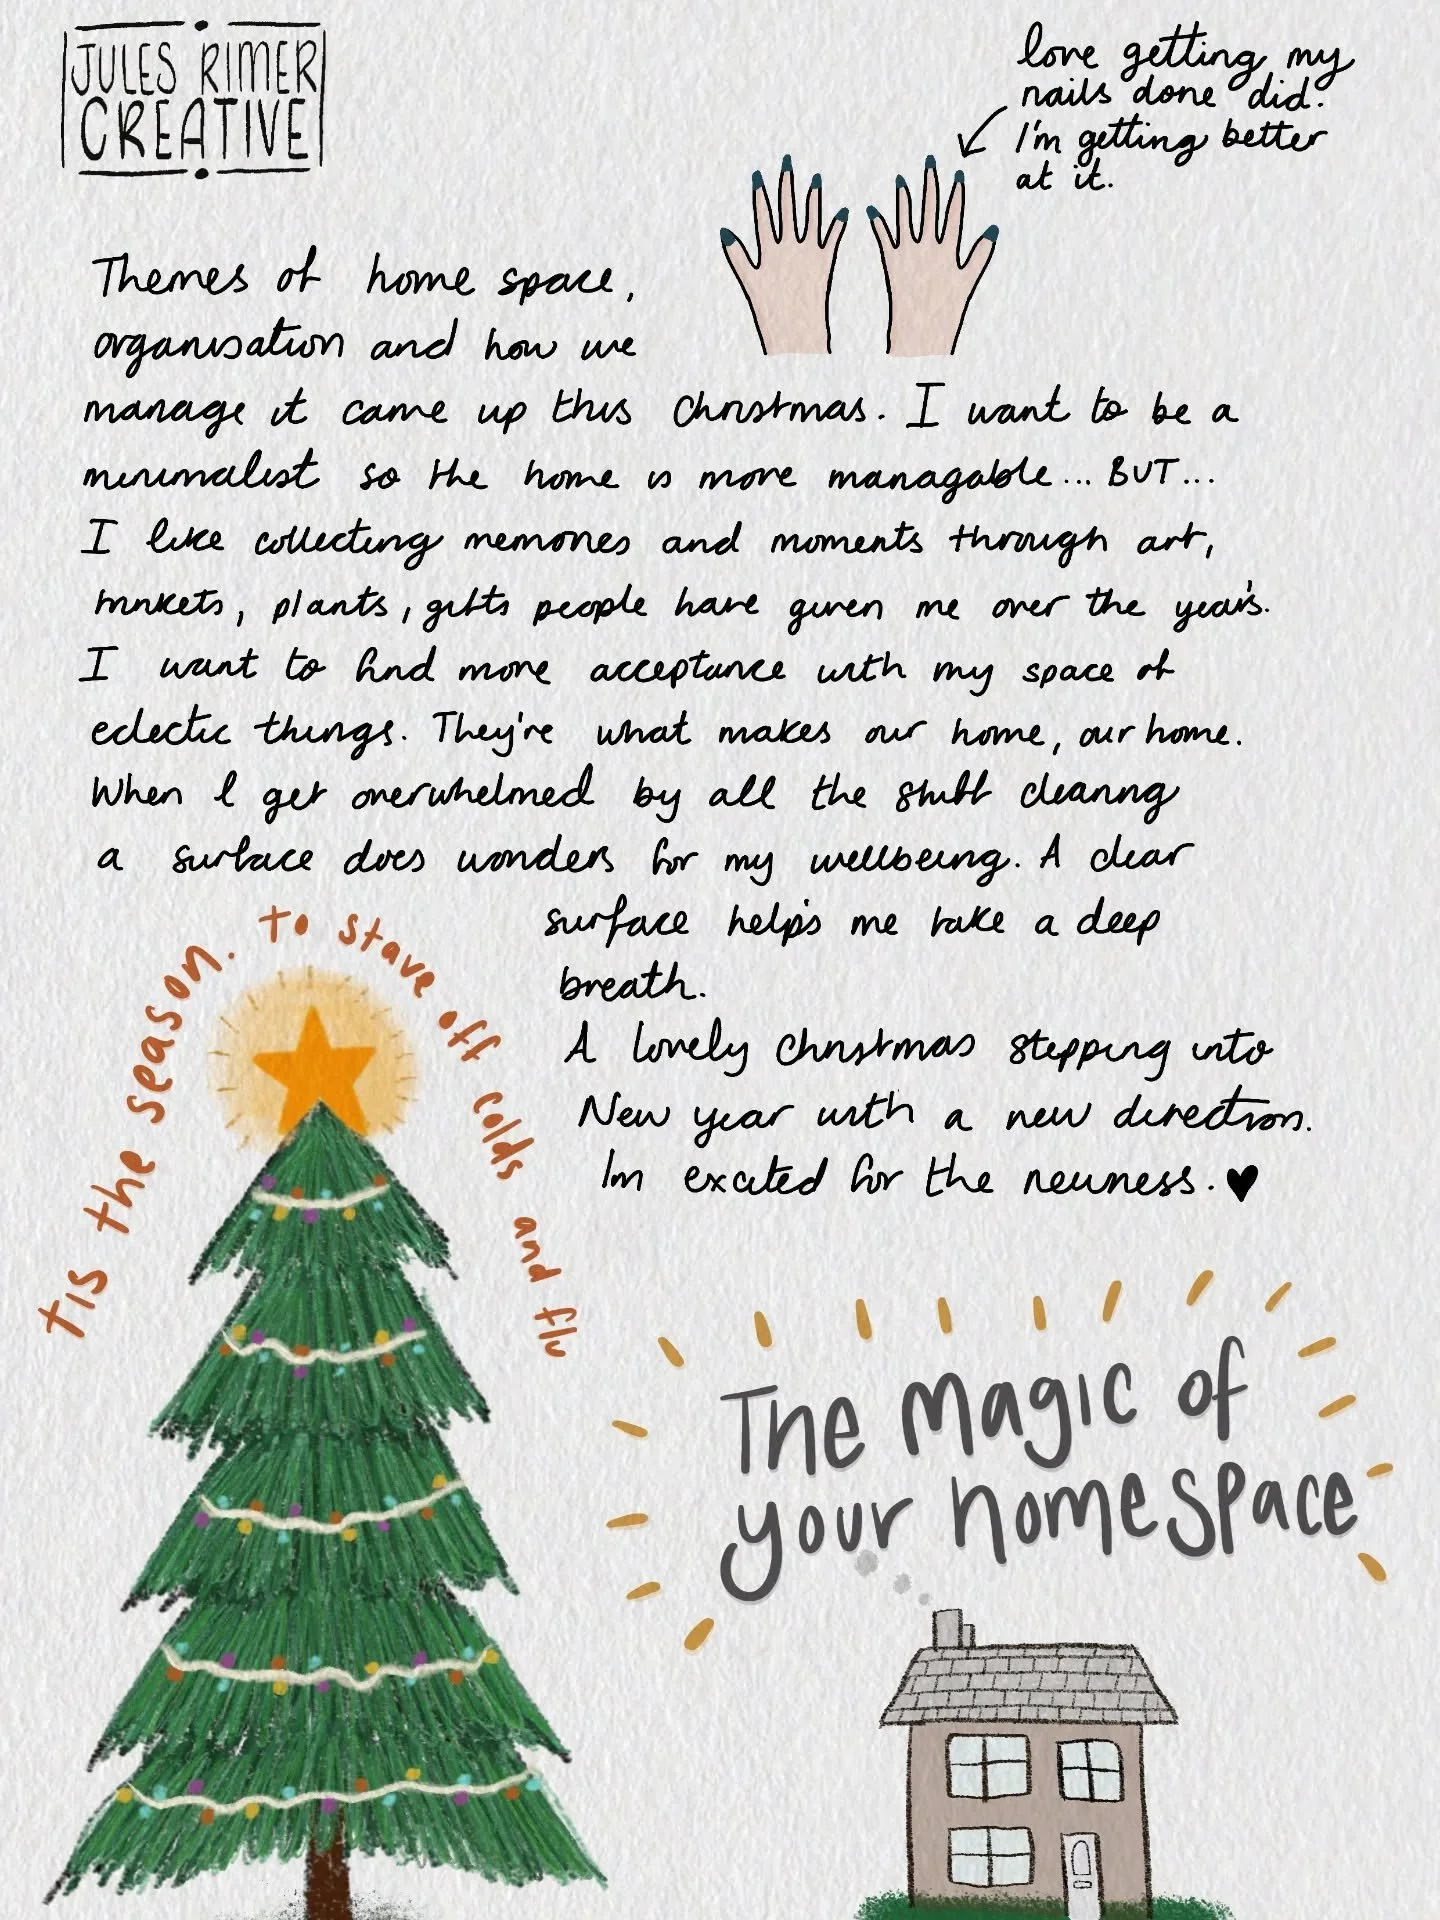 JULES RIMER
CREATIVE
love getting my
nails done did.
I'm getting better
at it.
Themes of home space,
organisation and how we
manage it came up this Christmas. I want to be a
minimalist so the home is more managable... BUT...
I like collecting memories and moments through art,
trinkets, plants, gifts people have given me over the years.
I want to find more acceptance with my space of
eclectic things. They're what makes our home, our home.
When I get overwhelmed by all the stuff cleaning
a surface does wonders for my wellbeing. A clear
surface helps me take a deep
breath.
A lovely Christmas stepping into
New year with a new direction.
Im excited for the newness. ♥
tis the season. to stave off colds and flu
The magic of
your homespace